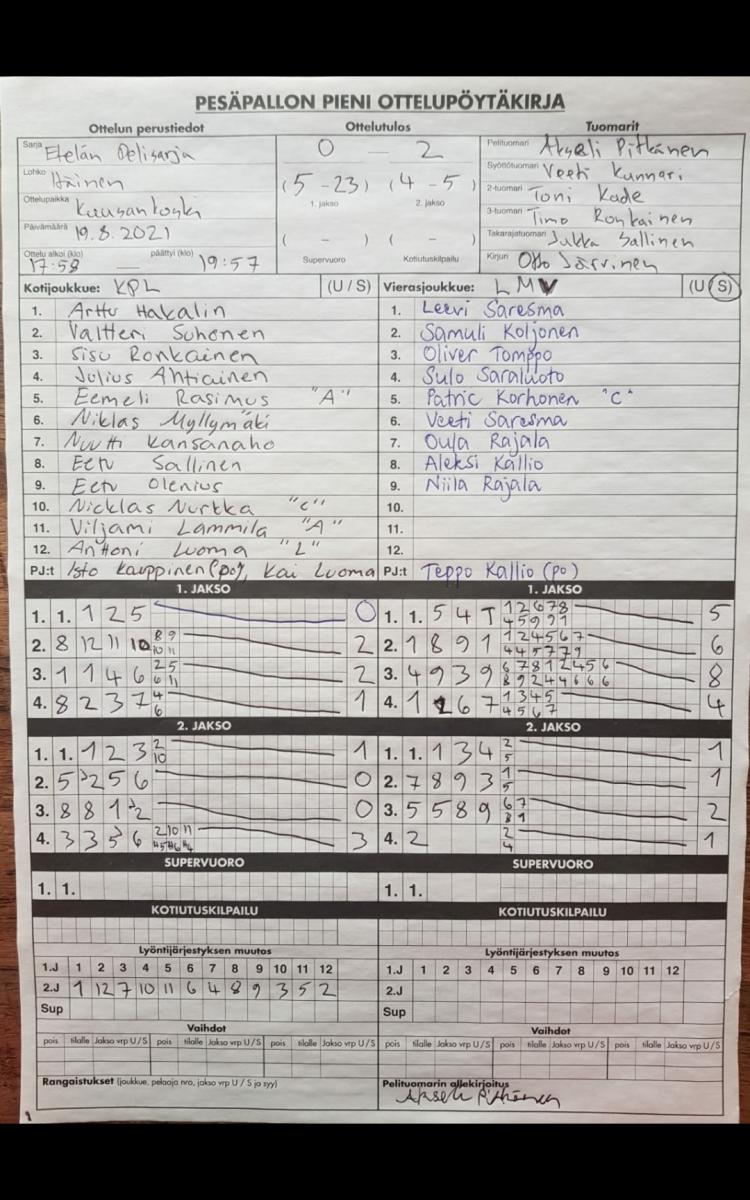 PESÄPALLON PIENI OTTELUPÖYTÄKIRJA
Ottelun perustiedot Ottelutulos Tuomarit
Sarja Etelän Pelisarja 0 — 2 Pelituomari Akseli Pitkänen
Lohko Itäinen (5 - 23) (4 - 5) Syöttötuomari Veeti Kunnari
1. jakso 2. jakso 2-tuomari Toni Kade
Ottelupaikka Kuusankoski 3-tuomari Timo Ronkainen
Päivämäärä 19.8.2021 ( - ) ( - ) Takarajatuomari Jukka Sallinen
Ottelu alkoi (klo) 17:58 — päättyi (klo) 19:57 Supervuoro Kotiutuskilpailu Kirjuri Otto Järvinen
Kotijoukkue: KPL (U / S) Vierasjoukkue: LMV (U / S)
1. Arttu Hakalin 1. Leevi Saresma
2. Valtteri Suhonen 2. Samuli Koljonen
3. Sisu Ronkainen 3. Oliver Tomppo
4. Julius Ahtiainen 4. Sulo Saraluoto
5. Eemeli Rasimus "A" 5. Patric Korhonen "C"
6. Niklas Myllymäki 6. Veeti Saresma
7. Nuutti Kansanaho 7. Oula Rajala
8. Eetu Sallinen 8. Aleksi Kallio
9. Eetu Olenius 9. Niila Rajala
10. Nicklas Nurkka "C" 10.
11. Viljami Lammila "A" 11.
12. Anttoni Luoma "L" 12.
PJ:t Isto Kauppinen (po), Kai Luoma PJ:t Teppo Kallio (po)
1. JAKSO 1. JAKSO
1. 1. 1 2 5 0 1. 1. 5 4 T 1 2 6 7 8 5
4 5 9 9 1
2. 8 12 11 10 8 9 2 2. 1 8 9 1 1 2 4 5 6 7 6
10 11 4 4 5 7 7 9
3. 1 1 4 6 2 5 2 3. 4 9 3 9 6 7 8 1 2 4 5 6 8
6 11 8 9 2 4 4 6 6 6
4. 8 2 3 7 4 1 4. 1 2 6 7 1 3 4 5 4
6 4 5 6 7
2. JAKSO 2. JAKSO
1. 1. 1 2 3 2 1 1. 1. 1 3 4 2 1
10 5
2. 5 2 5 6 0 2. 7 8 9 3 1 1
5
3. 8 8 1 2 0 3. 5 5 8 9 6 7 2
8 1
4. 3 3 5 6 2 10 11 3 4. 2 2 1
4
SUPERVUORO SUPERVUORO
1. 1. 1. 1.
KOTIUTUSKILPAILU KOTIUTUSKILPAILU
Lyöntijärjestyksen muutos Lyöntijärjestyksen muutos
1.J 1 2 3 4 5 6 7 8 9 10 11 12 1.J 1 2 3 4 5 6 7 8 9 10 11 12
2.J 1 12 7 10 11 6 4 8 9 3 5 2 2.J
Sup Sup
Vaihdot Vaihdot
pois tilalle Jakso vrp U / S pois tilalle Jakso vrp U / S pois tilalle Jakso vrp U / S pois tilalle Jakso vrp U / S pois tilalle Jakso vrp U / S pois tilalle Jakso vrp U / S
Rangaistukset (joukkue, pelaaja nro, jakso vrp U / S ja syy) Pelituomarin allekirjoitus
Akseli Pitkänen